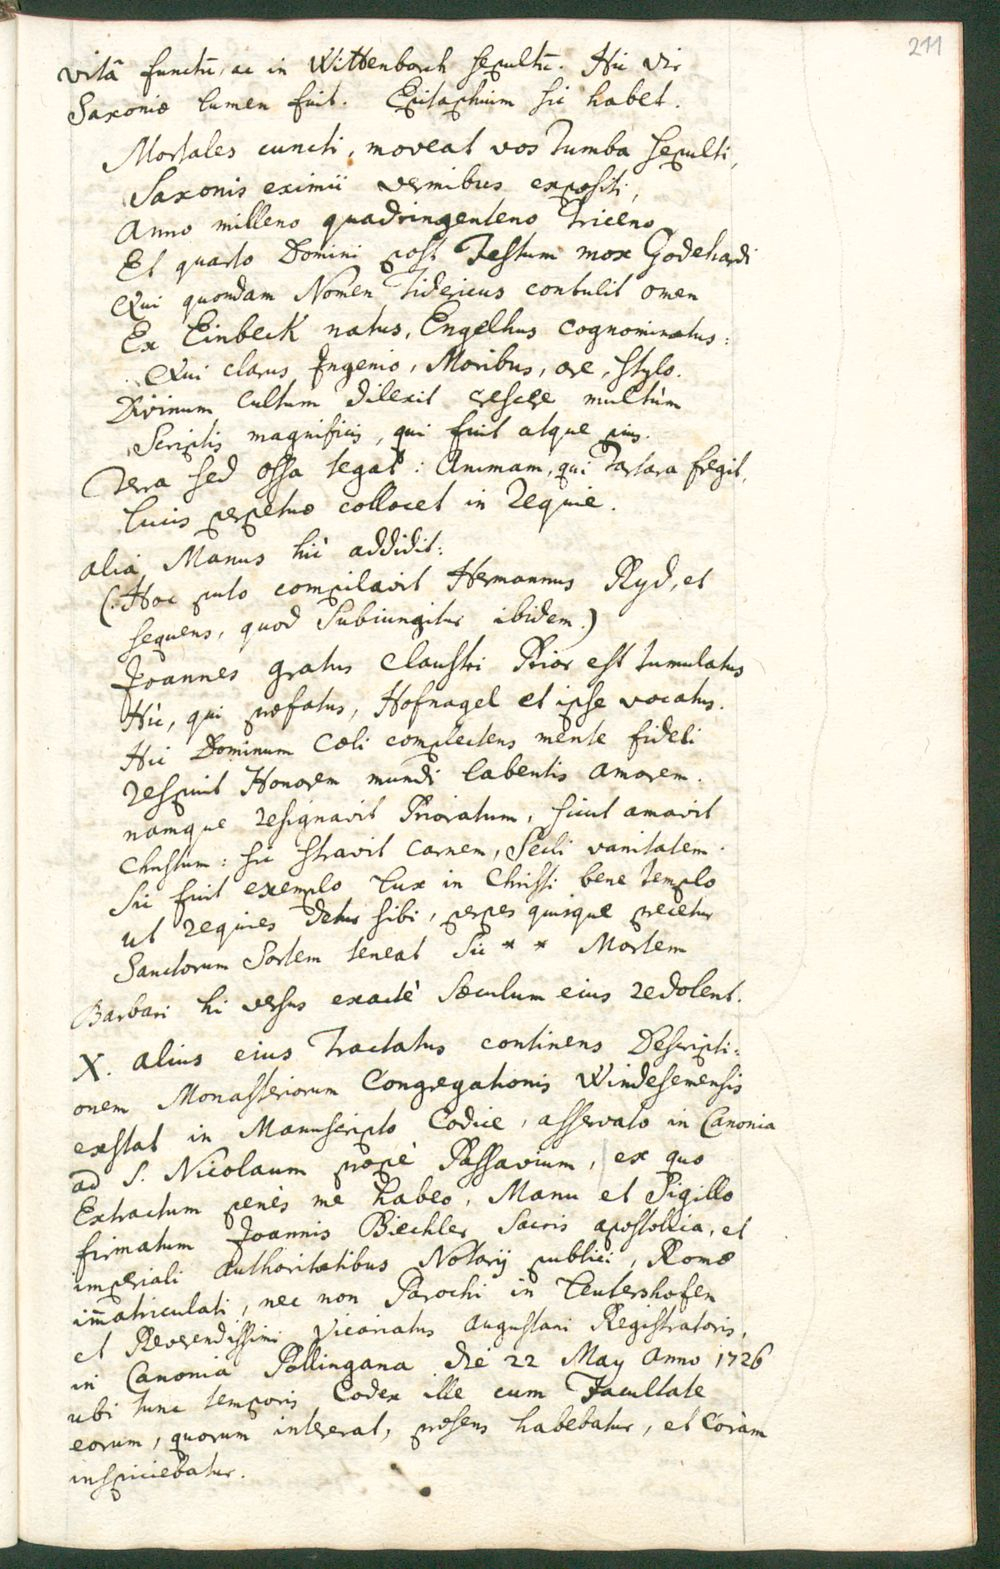 211
vitâ functū, ac in Wittenborch sepultū. Hic vir
Saxoniæ lumen fuit. Epitaphium sic habet.
Mortales cuncti, moveat vos Tumba sepulti,
Saxonis eximii vermibus expositi,
Anno milleno quadringenteno Triceno
Et quarto Domini post Festum mox Godehardi
Qui quondam Nomen Tidericus contulit omen
Ex Einbeck natus, Engelhus cognominatus:
Qui clarus Ingenio, Moribus, ore, stylo.
Divinum Cultum dilexit crescere multùm
Scriptis magnificis, qui fuit atque pius.
Terra sed ossa tegat: Animam, qui Tartara fregit,
Lucis perpetuæ collocet in Requie.
alia Manus hìc addidit:
(: Hoc puto compilavit Hermannus Ryd, et
sequens, quod Subiungitur ibidem.)
Joannes gratus Claustri Prior est tumulatus
Hìc, qui præfatus, Hofnagel et ipse vocatus.
Hic Dominum Cœli complectens mente fideli
respuit Honorem mundi labentis amorem.
namque resignavit Prioratum, sicut amavit
Christum: sic stravit carnem, Secli vanitatem.
Sic fuit exemplo Lux in Christi bene Templo
ut requies detur sibi, perpes quisque precetur
Sanctorum Sortem teneat Sic * * Mortem
Barbari hi versus exactè Sæculum eius redolent.
X. alius eius Tractatus continens Descripti-
onem Monasteriorum Congregationis Windesemensis
exstat in Manuscripto Codice, asservato in Canonia
ad S. Nicolaum propè Passavium, ex quo
Extractum penès me habeo, Manu et Sigillo
firmatum Joannis Biechler Sacris apostolica, et
imperiali Authoritatibus Notarij publici, Romæ
im̄atriculati, nec non Parochi in Leutershofen
et Reverendissimi Vicariatus Augustani Registratoris,
in Canonia Pollingana die 22 May Anno 1726
ubi tunc temporis Codex ille cum Facultate
eorum, quorum intererat, præsens habebatur, et Coràm
inspiciebatur.